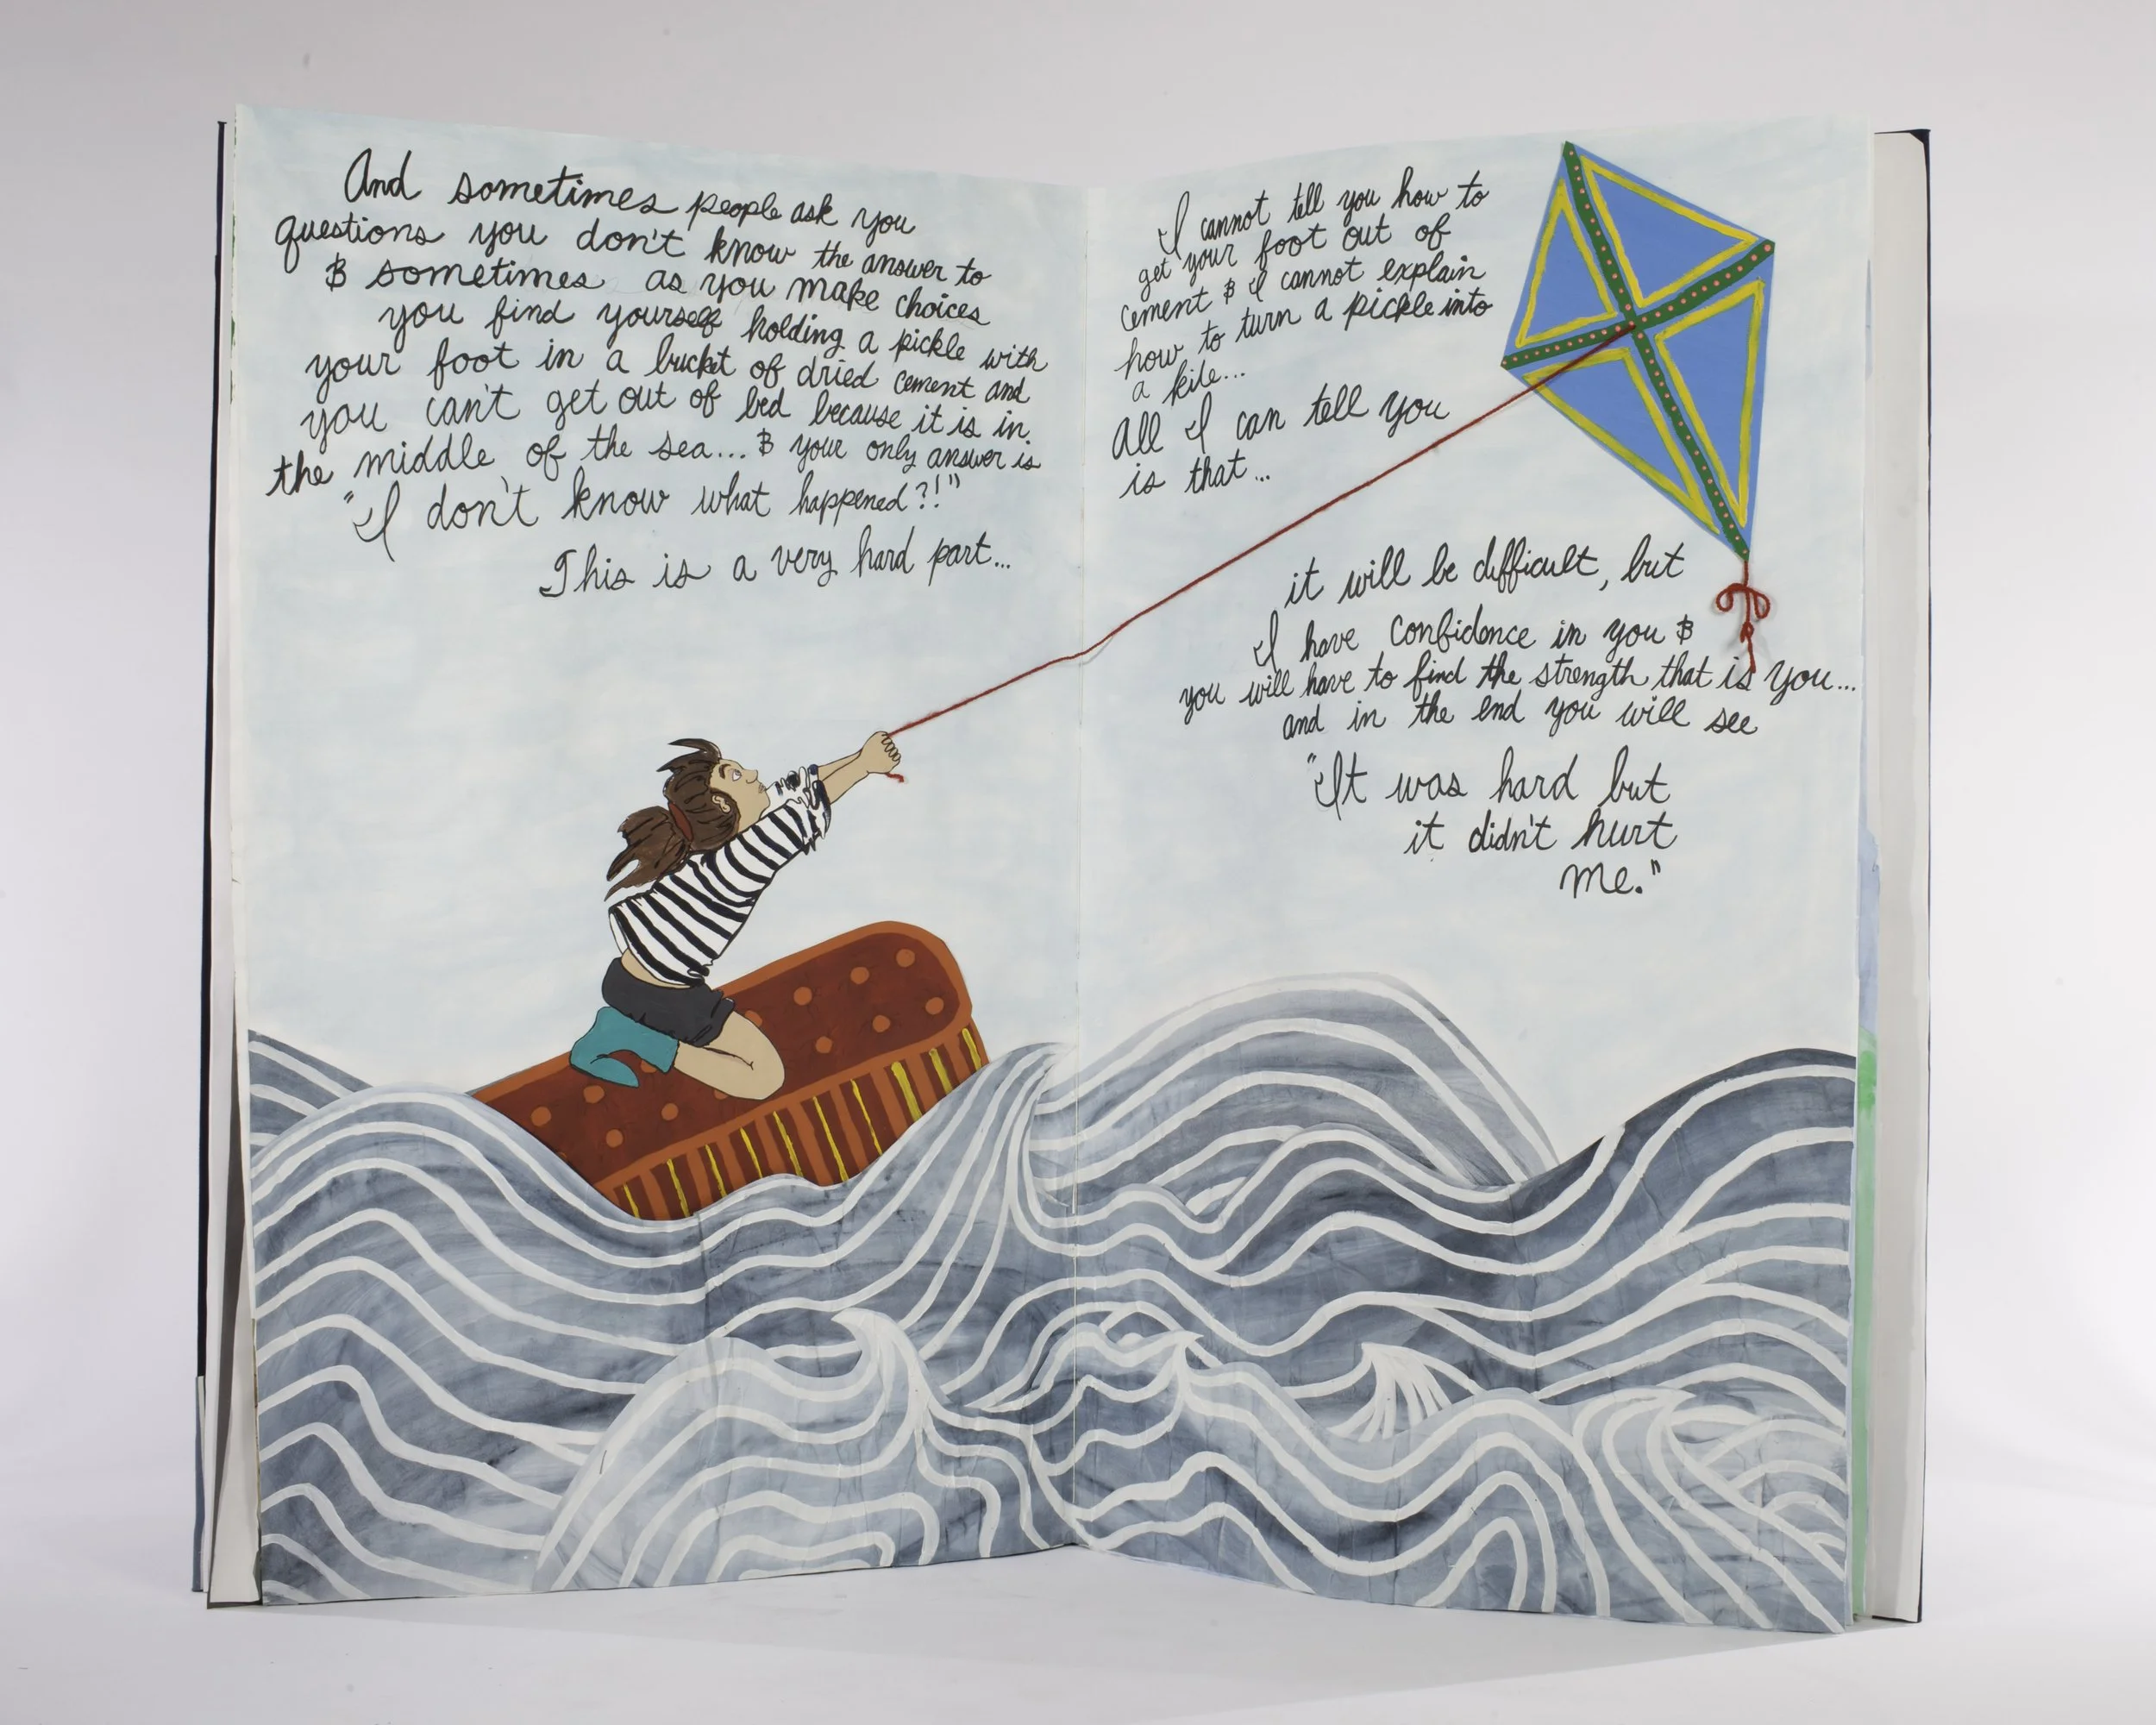 And sometimes people ask you
questions you don't know the answer to
& sometimes as you make choices
you find yourself holding a pickle with
your foot in a bucket of dried cement and
you can't get out of bed because it is in
the middle of the sea... & your only answer is
"I don't know what happened?!"
This is a very hard part...
I cannot tell you how to
get your foot out of
cement & I cannot explain
how to turn a pickle into
a kite...
All I can tell you
is that...
it will be difficult, but
I have confidence in you &
you will have to find the strength that is you...
and in the end you will see
"It was hard but
it didn't hurt
me."